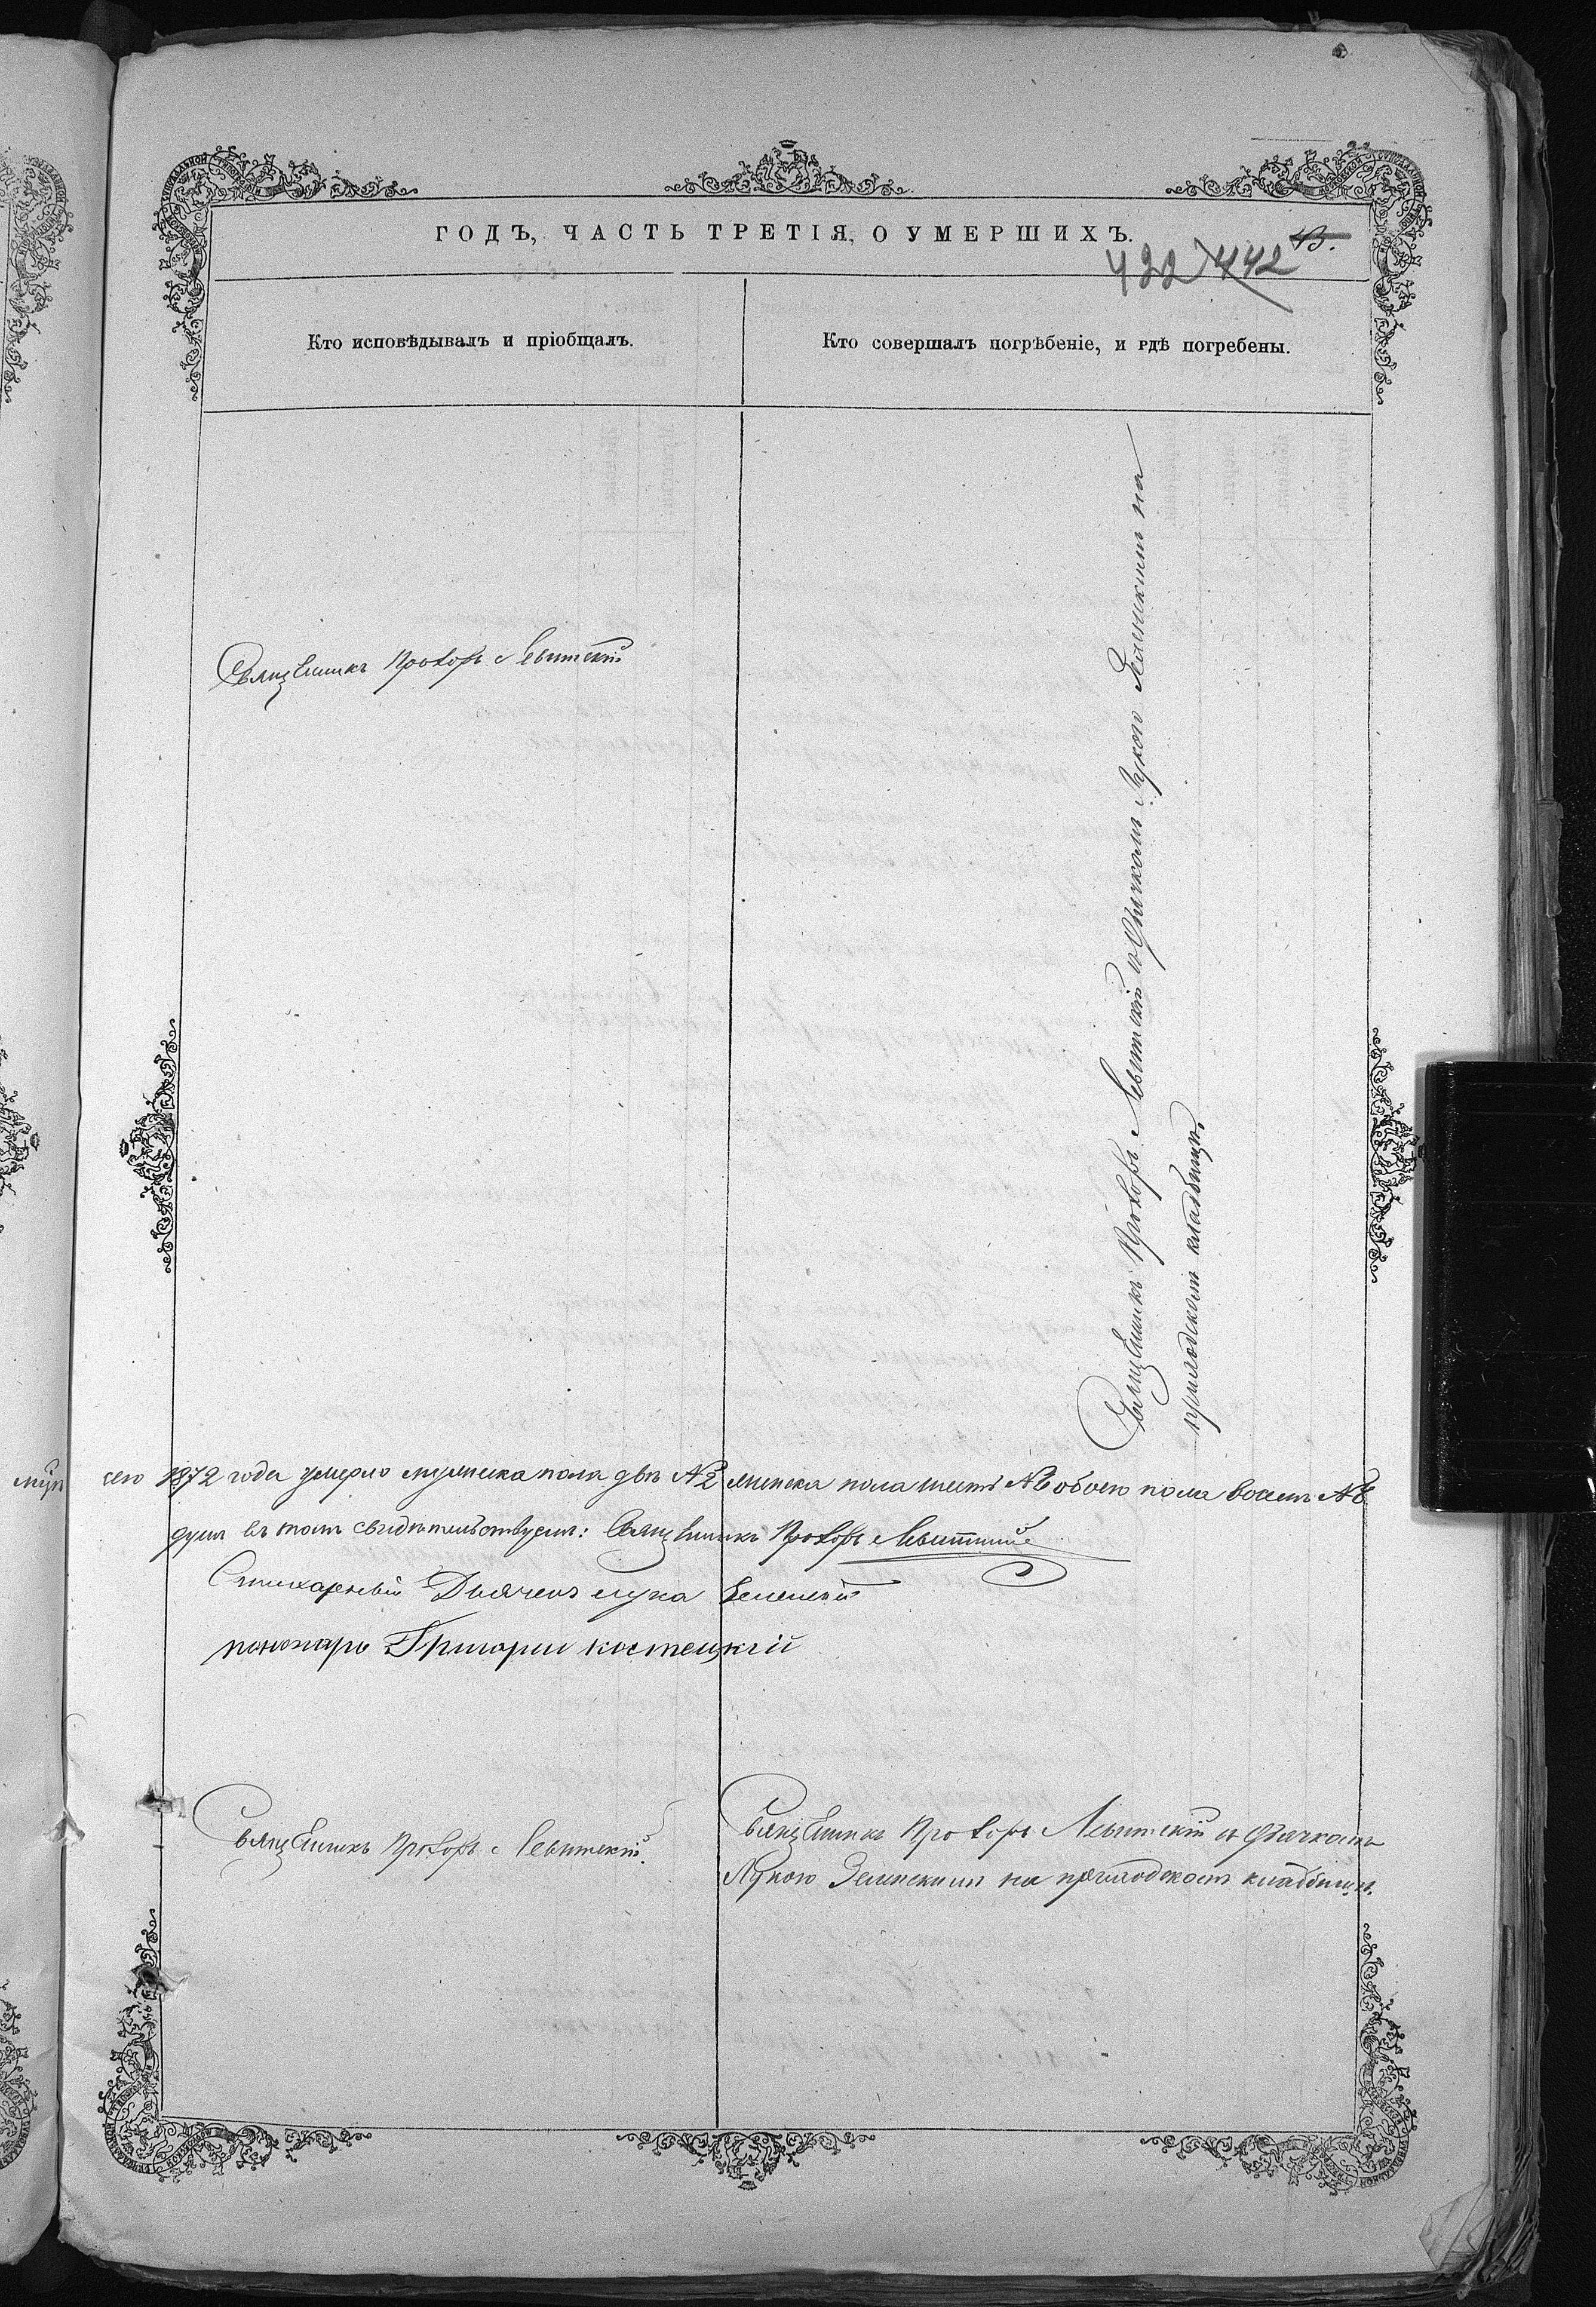 ГОДЪ, ЧАСТЬ ТРЕТІЯ, О УМЕРШИХЪ.
422 442 43.
Кто исповѣдывалъ и пріобщалъ.
Кто совершалъ погрѣбеніе, и гдѣ погребены.
Священникъ Прохоръ Левитскій
Священникъ Прохоръ Левитскій съ Дьячкомъ Лукою Зелинскимъ на
приходскомъ кладбищѣ.
сего 1872 года умерло мужеска пола двѣ №2 женска пола шесть №6 обоего пола восемь №8
душъ въ томъ свидѣтельствуемъ: Священникъ Прохоръ Левитскій
Стихарный Дьячекъ Лука Зелинскій
пономарь Григорий Костецкій
Священникъ Прохоръ Левитскій.
Священникъ Прохоръ Левитскій съ Дьячкомъ
Лукою Зелинскимъ на приходскомъ кладбищѣ.